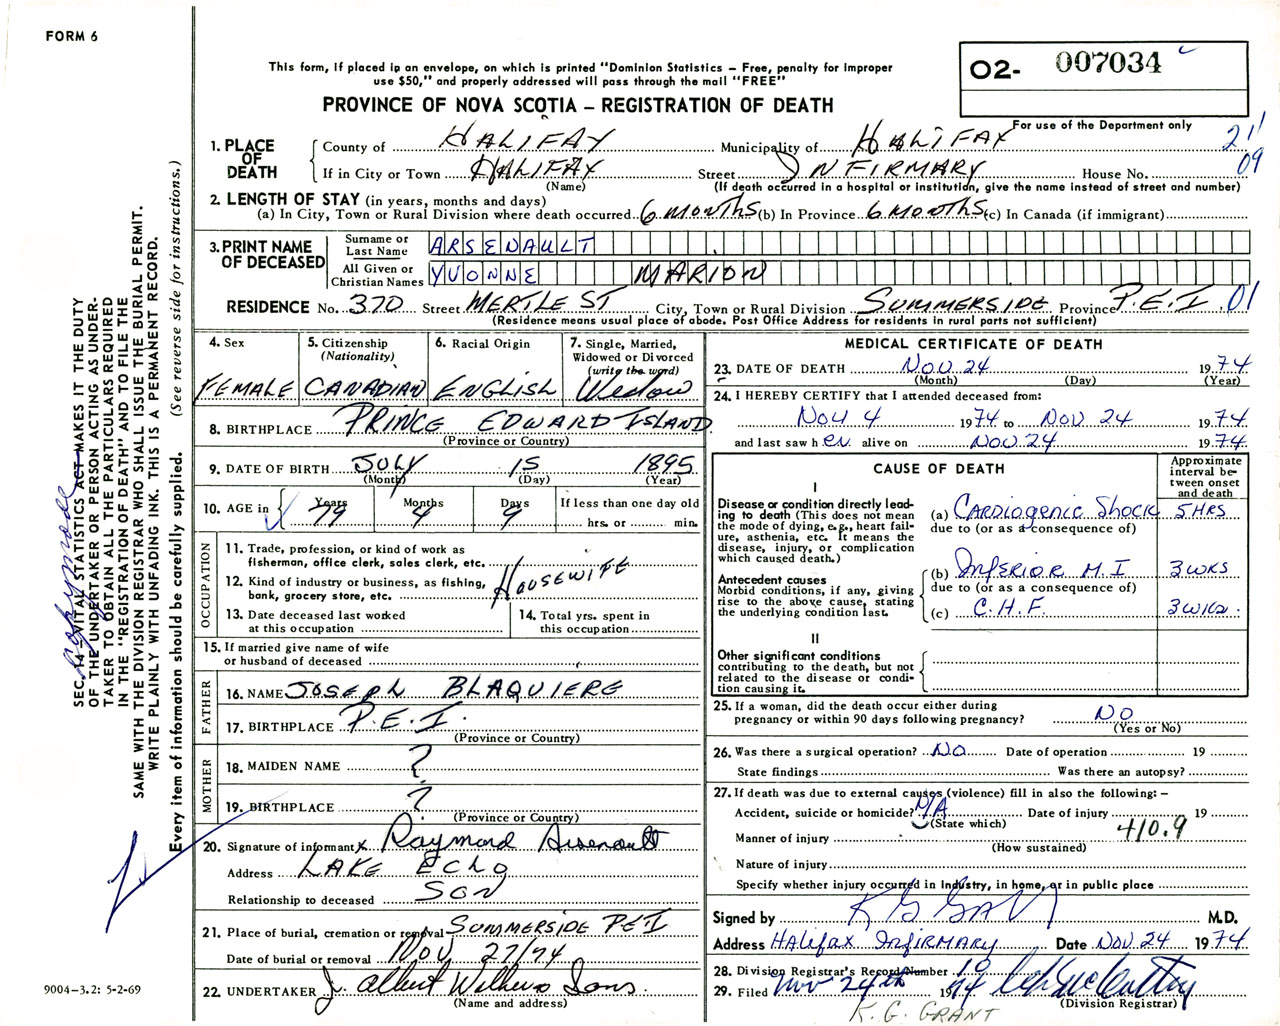 FORM 6
This form, if placed in an envelope, on which is printed "Dominion Statistics – Free, penalty for improper
use $50," and properly addressed will pass through the mail "FREE"
PROVINCE OF NOVA SCOTIA – REGISTRATION OF DEATH
O2- 007034
For use of the Department only
211
09
1. PLACE OF DEATH
County of HALIFAX Municipality of HALIFAX
If in City or Town HALIFAX Street INFIRMARY House No.
(Name) (If death occurred in a hospital or institution, give the name instead of street and number)
2. LENGTH OF STAY (in years, months and days)
(a) In City, Town or Rural Division where death occurred 6 MONTHS (b) In Province 6 MONTHS (c) In Canada (if immigrant)
3. PRINT NAME OF DECEASED
Surname or Last Name ARSENAULT
All Given or Christian Names YVONNE MARION
RESIDENCE No. 370 Street MERTLE ST City, Town or Rural Division SUMMERSIDE Province P.E.I. 01
(Residence means usual place of abode. Post Office Address for residents in rural parts not sufficient)
4. Sex FEMALE
5. Citizenship (Nationality) CANADIAN
6. Racial Origin ENGLISH
7. Single, Married, Widowed or Divorced (write the word) Widow
8. BIRTHPLACE PRINCE EDWARD ISLAND
(Province or Country)
9. DATE OF BIRTH JULY 15 1895
(Month) (Day) (Year)
10. AGE in Years 79 Months 4 Days 9 If less than one day old hrs. or min.
OCCUPATION
11. Trade, profession, or kind of work as fisherman, office clerk, sales clerk, etc.
12. Kind of industry or business, as fishing, bank, grocery store, etc. HOUSEWIFE
13. Date deceased last worked at this occupation
14. Total yrs. spent in this occupation
15. If married give name of wife or husband of deceased
FATHER
16. NAME JOSEPH BLAQUIERE
17. BIRTHPLACE P.E.I.
(Province or Country)
MOTHER
18. MAIDEN NAME ?
19. BIRTHPLACE ?
(Province or Country)
20. Signature of informant x Raymond Arsenault
Address LAKE ECHO
Relationship to deceased SON
21. Place of burial, cremation or removal SUMMERSIDE PEI
Date of burial or removal NOV 27/74
22. UNDERTAKER J. Albert Sons.
(Name and address)
MEDICAL CERTIFICATE OF DEATH
23. DATE OF DEATH NOV 24 1974
(Month) (Day) (Year)
24. I HEREBY CERTIFY that I attended deceased from:
NOV 4 1974 to NOV 24 1974
and last saw her alive on NOV 24 1974
CAUSE OF DEATH
Approximate interval between onset and death
I
Disease or condition directly leading to death (This does not mean the mode of dying, e.g., heart failure, asthenia, etc. It means the disease, injury, or complication which caused death.)
(a) CARDIOGENIC SHOCK 5 HRS
due to (or as a consequence of)
Antecedent causes
Morbid conditions, if any, giving rise to the above cause, stating the underlying condition last.
(b) INFERIOR M.I 3 WKS
due to (or as a consequence of)
(c) C.H.F. 3 WKS.
II
Other significant conditions contributing to the death, but not related to the disease or condition causing it.
25. If a woman, did the death occur either during pregnancy or within 90 days following pregnancy? NO
(Yes or No)
26. Was there a surgical operation? NO Date of operation 19
State findings Was there an autopsy?
27. If death was due to external causes (violence) fill in also the following: –
Accident, suicide or homicide? N/A Date of injury 19
(State which)
Manner of injury 410.9
(How sustained)
Nature of injury
Specify whether injury occurred in industry, in home, or in public place
Signed by M.D.
Address HALIFAX INFIRMARY Date NOV. 24 1974
28. Division Registrar's Record Number
29. Filed Nov 24th 1974
(Division Registrar)
K. G. GRANT
9004–3.2: 5-2-69
SEC. 14 – VITAL STATISTICS ACT MAKES IT THE DUTY
OF THE UNDERTAKER OR PERSON ACTING AS UNDER-
TAKER TO OBTAIN ALL THE PARTICULARS REQUIRED
IN THE "REGISTRATION OF DEATH" AND TO FILE THE
SAME WITH THE DIVISION REGISTRAR WHO SHALL ISSUE THE BURIAL PERMIT.
WRITE PLAINLY WITH UNFADING INK. THIS IS A PERMANENT RECORD.
Every item of information should be carefully supplied. (See reverse side for instructions.)
copy made